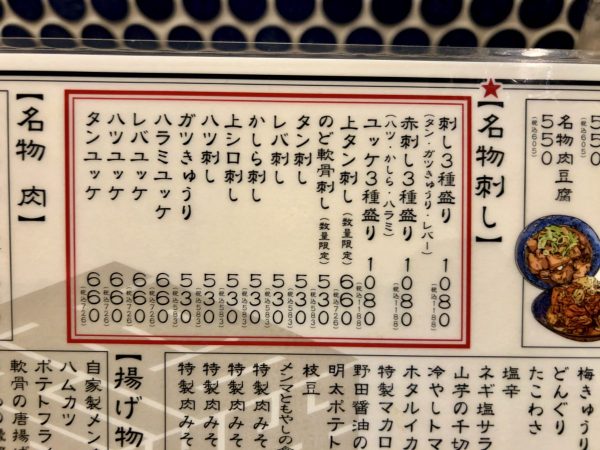 550
(税込605)
名物肉豆腐
550
(税込605)
【名物刺し】
刺し3種盛り 1080
(タン・ガツきゅうり・レバー) (税込1188)
赤刺し3種盛り 1080
(ハツ・かしら・ハラミ) (税込1188)
ユッケ3種盛り 1080
(税込1188)
上タン刺し(数量限定) 660
(税込726)
のど軟骨刺し(数量限定) 530
(税込583)
タン刺し 530
(税込583)
レバ刺し 530
(税込583)
かしら刺し 530
(税込583)
上シロ刺し 530
(税込583)
ハツ刺し 530
(税込583)
ガツきゅうり 530
(税込583)
ハラミユッケ 660
(税込726)
レバユッケ 660
(税込726)
ハツユッケ 660
(税込726)
タンユッケ 660
(税込726)
【名物 肉】
梅きゅうり
どんぐり
たこわさ
塩辛
ネギ塩サラ
山芋の千切
冷やしトマ
ホタルイカ
特製マカロ
野田醤油の
明太ポテト
枝豆
メンマともやしの
特製肉みそ
特製肉みそ
特製肉みそ
特製肉みそ
【揚げ物
自家製メン
ハムカツ
ポテトフライ
軟骨の唐揚